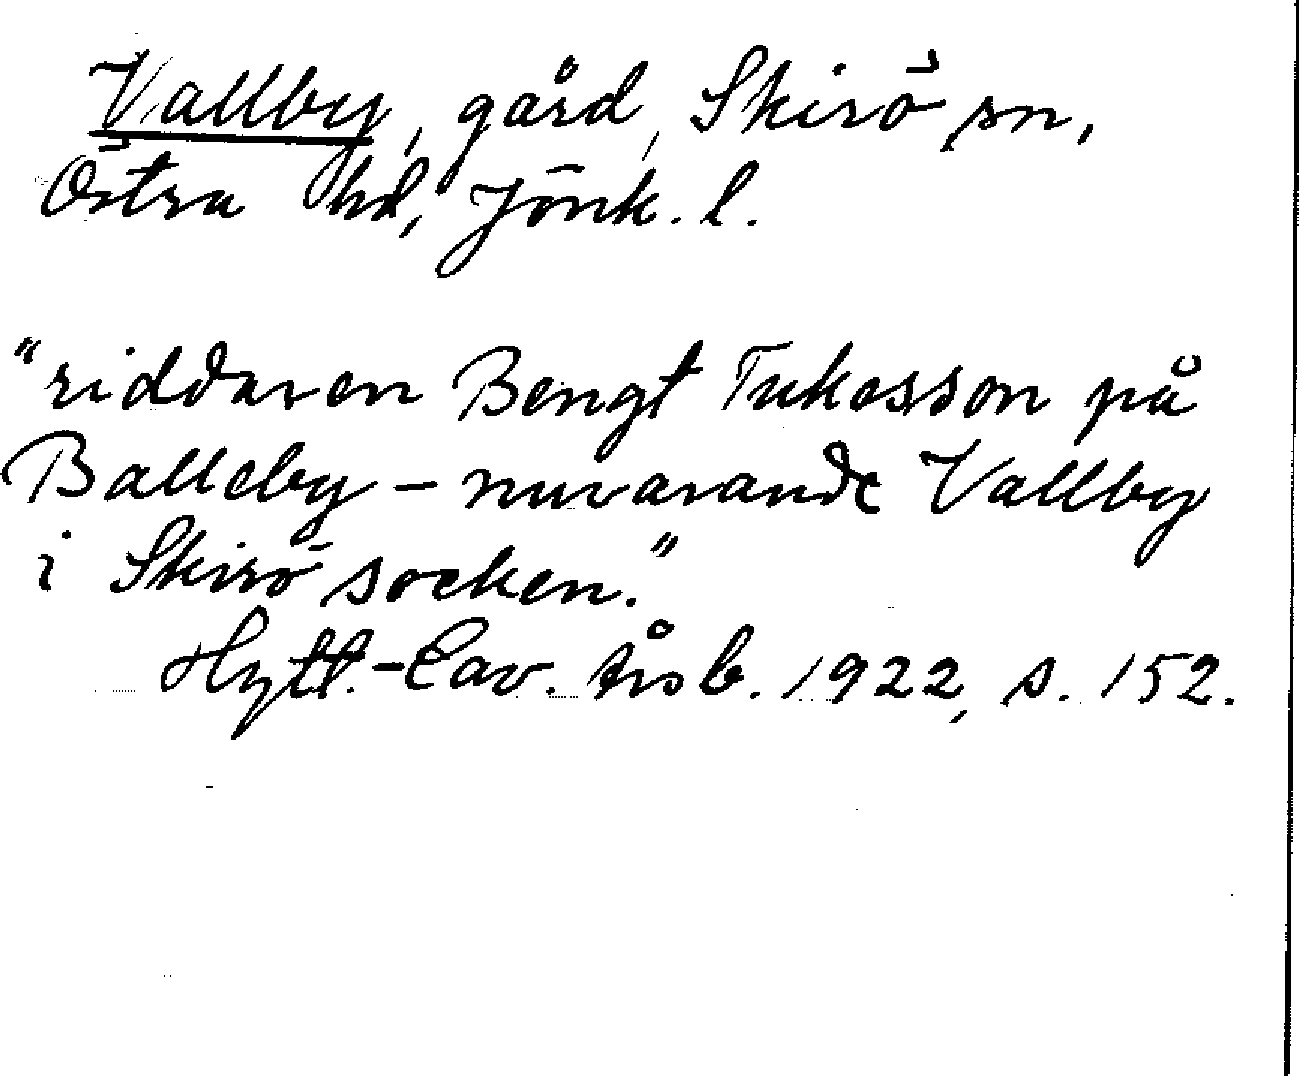 Vallby, gård, Skirö sn,
Östra hd, Jönk. l.
"riddaren Bengt Tukesson på
Balleby - nuvarande Vallby
i Skirö socken."
Hylt.-Cav. årsb. 1922, s. 152.